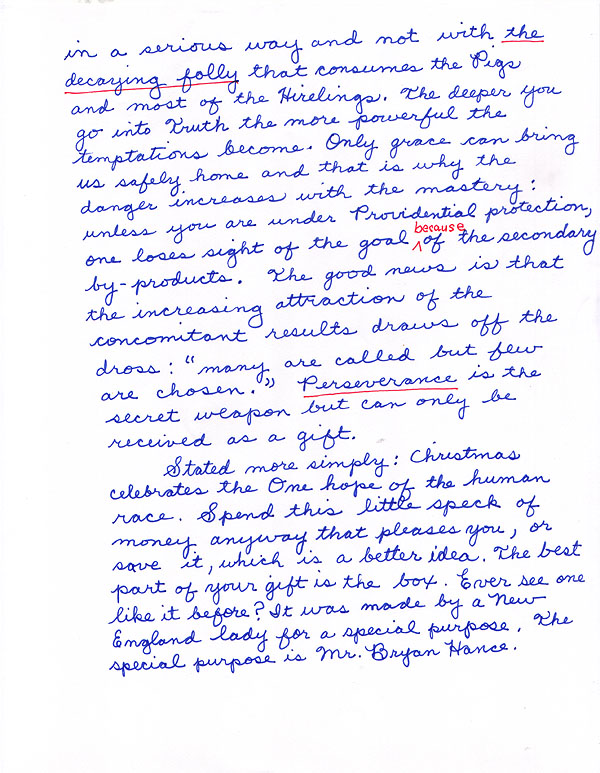 in a serious way and not with the
decaying folly that consumes the Pigs
and most of the Hirelings. The deeper you
go into Truth the more powerful the
temptations become. Only grace can bring
us safely home and that is why the
danger increases with the mastery:
unless you are under Providential protection,
one loses sight of the goal because of the secondary
by-products. The good news is that
the increasing attraction of the
concomitant results draws off the
dross: "many are called but few
are chosen." Perseverance is the
secret weapon but can only be
received as a gift.
Stated more simply: Christmas
celebrates the One hope of the human
race. Spend this little speck of
money anyway that pleases you, or
save it, which is a better idea. The best
part of your gift is the box. Ever see one
like it before? It was made by a New
England lady for a special purpose. The
special purpose is Mr. Bryan Hance.